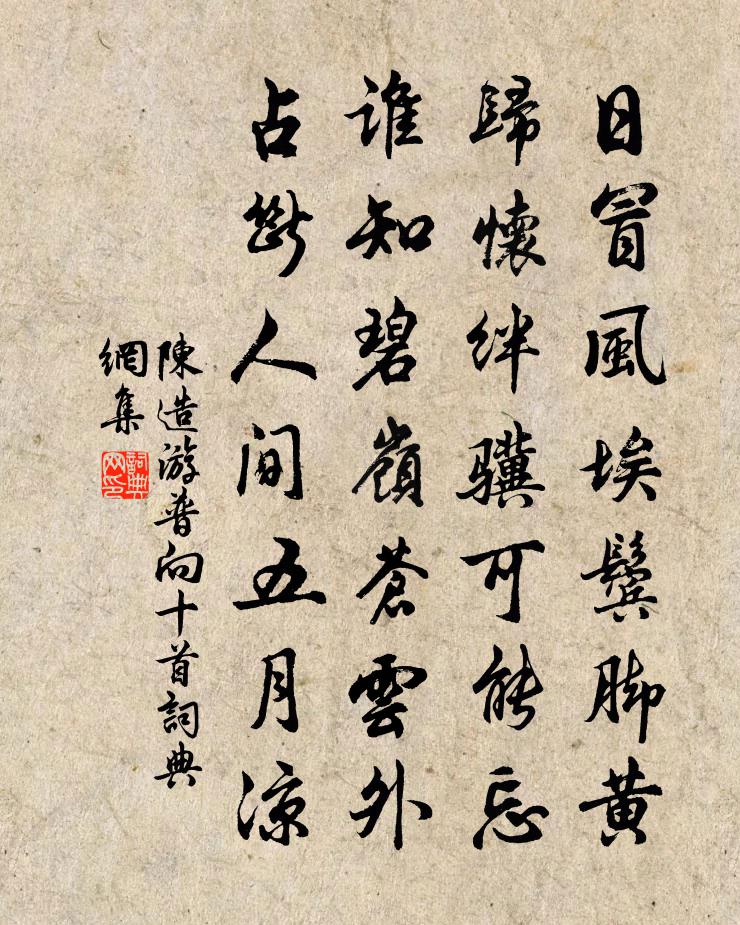 日冒風埃鬓脚黄
歸懷絆驥可能忘
谁知碧嶺蒼雲外
占斷人间五月凉
陳造游普向十首詞典
網集
詞典
网印